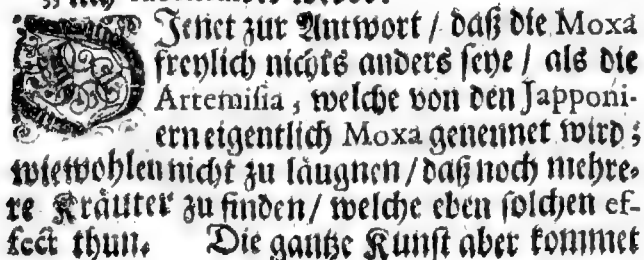 DIenet zur Antwort / daß die Moxa
freylich nichts anders seye / als die
Artemisia, welche von den Japponi-
ern eigentlich Moxa genennet wird;
wiewohlen nicht zu läugnen / daß noch mehre-
re Kräuter zu finden / welche eben solchen ef-
fect thun. Die gantze Kunst aber kommet